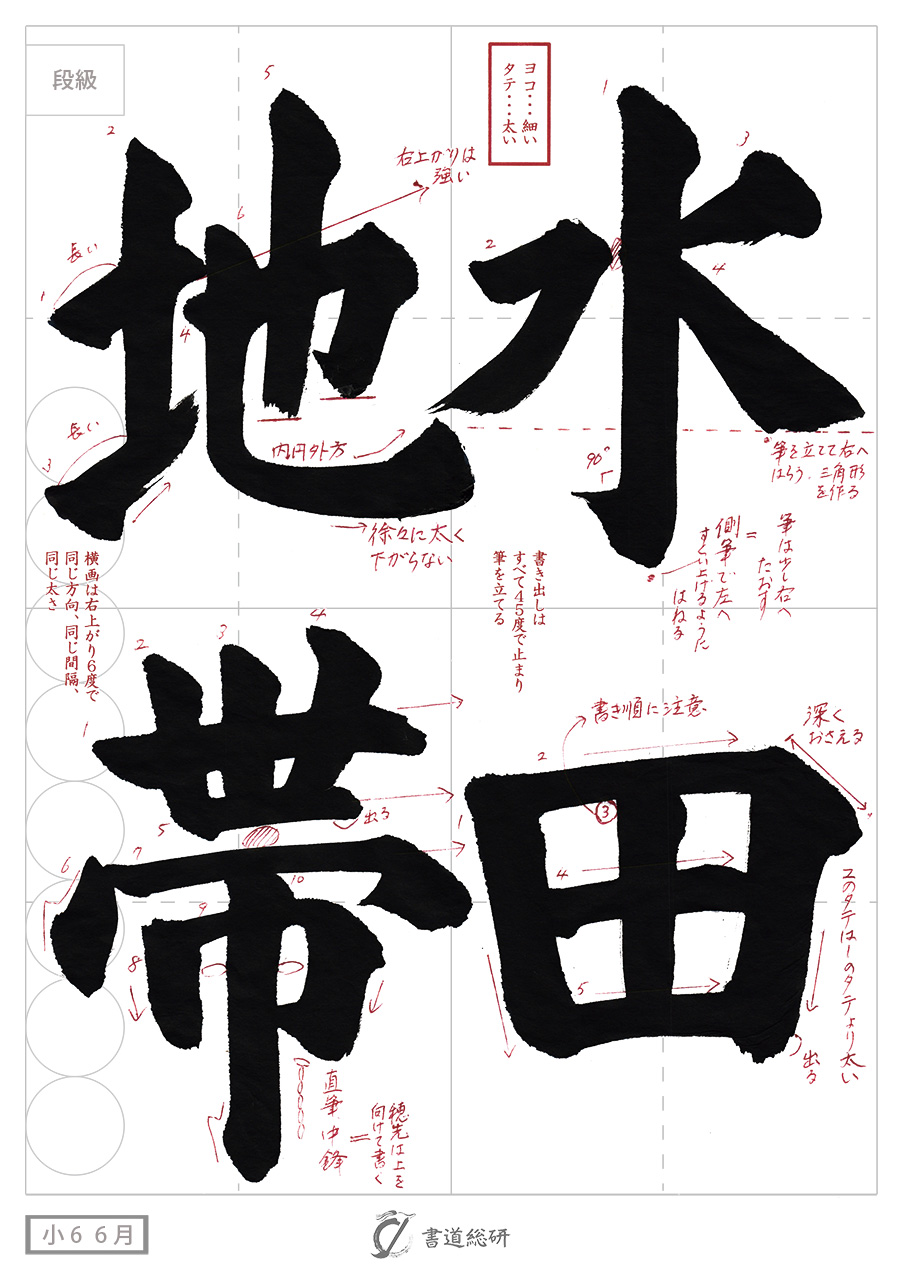 段級
水
田
地
帯
ヨコ・・・細い
タテ・・・太い
1
2
3
4
90°
筆を立てて右へ
はらう.三角形
を作る
筆は少し右へ
たおす
=
側筆で左へ
すくい上げるように
はねる
書き出しは
すべて45度で止まり
筆を立てる
5
2
6
1
4
3
右上がりは
強い
長い
長い
内円外方
徐々に太く
下がらない
横画は右上がり6度で
同じ方向、同じ間隔、
同じ太さ
書き順に注意
深く
おさえる
2
③
1
4
5
2のタテは1のタテより太い
出る
4
3
2
1
5
出る
6
7
10
9
8
直筆・中鋒
=
穂先は上を
向けて書く
小6 6月
書道総研